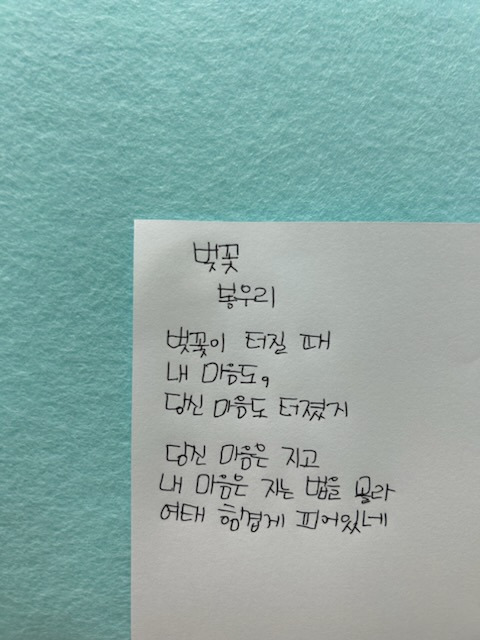 벚꽃
봉우리
벚꽃이 터질 때
내 마음도,
당신 마음도 터졌지
당신 마음은 지고
내 마음은 지는 법을 몰라
여태 힘겹게 피어있네